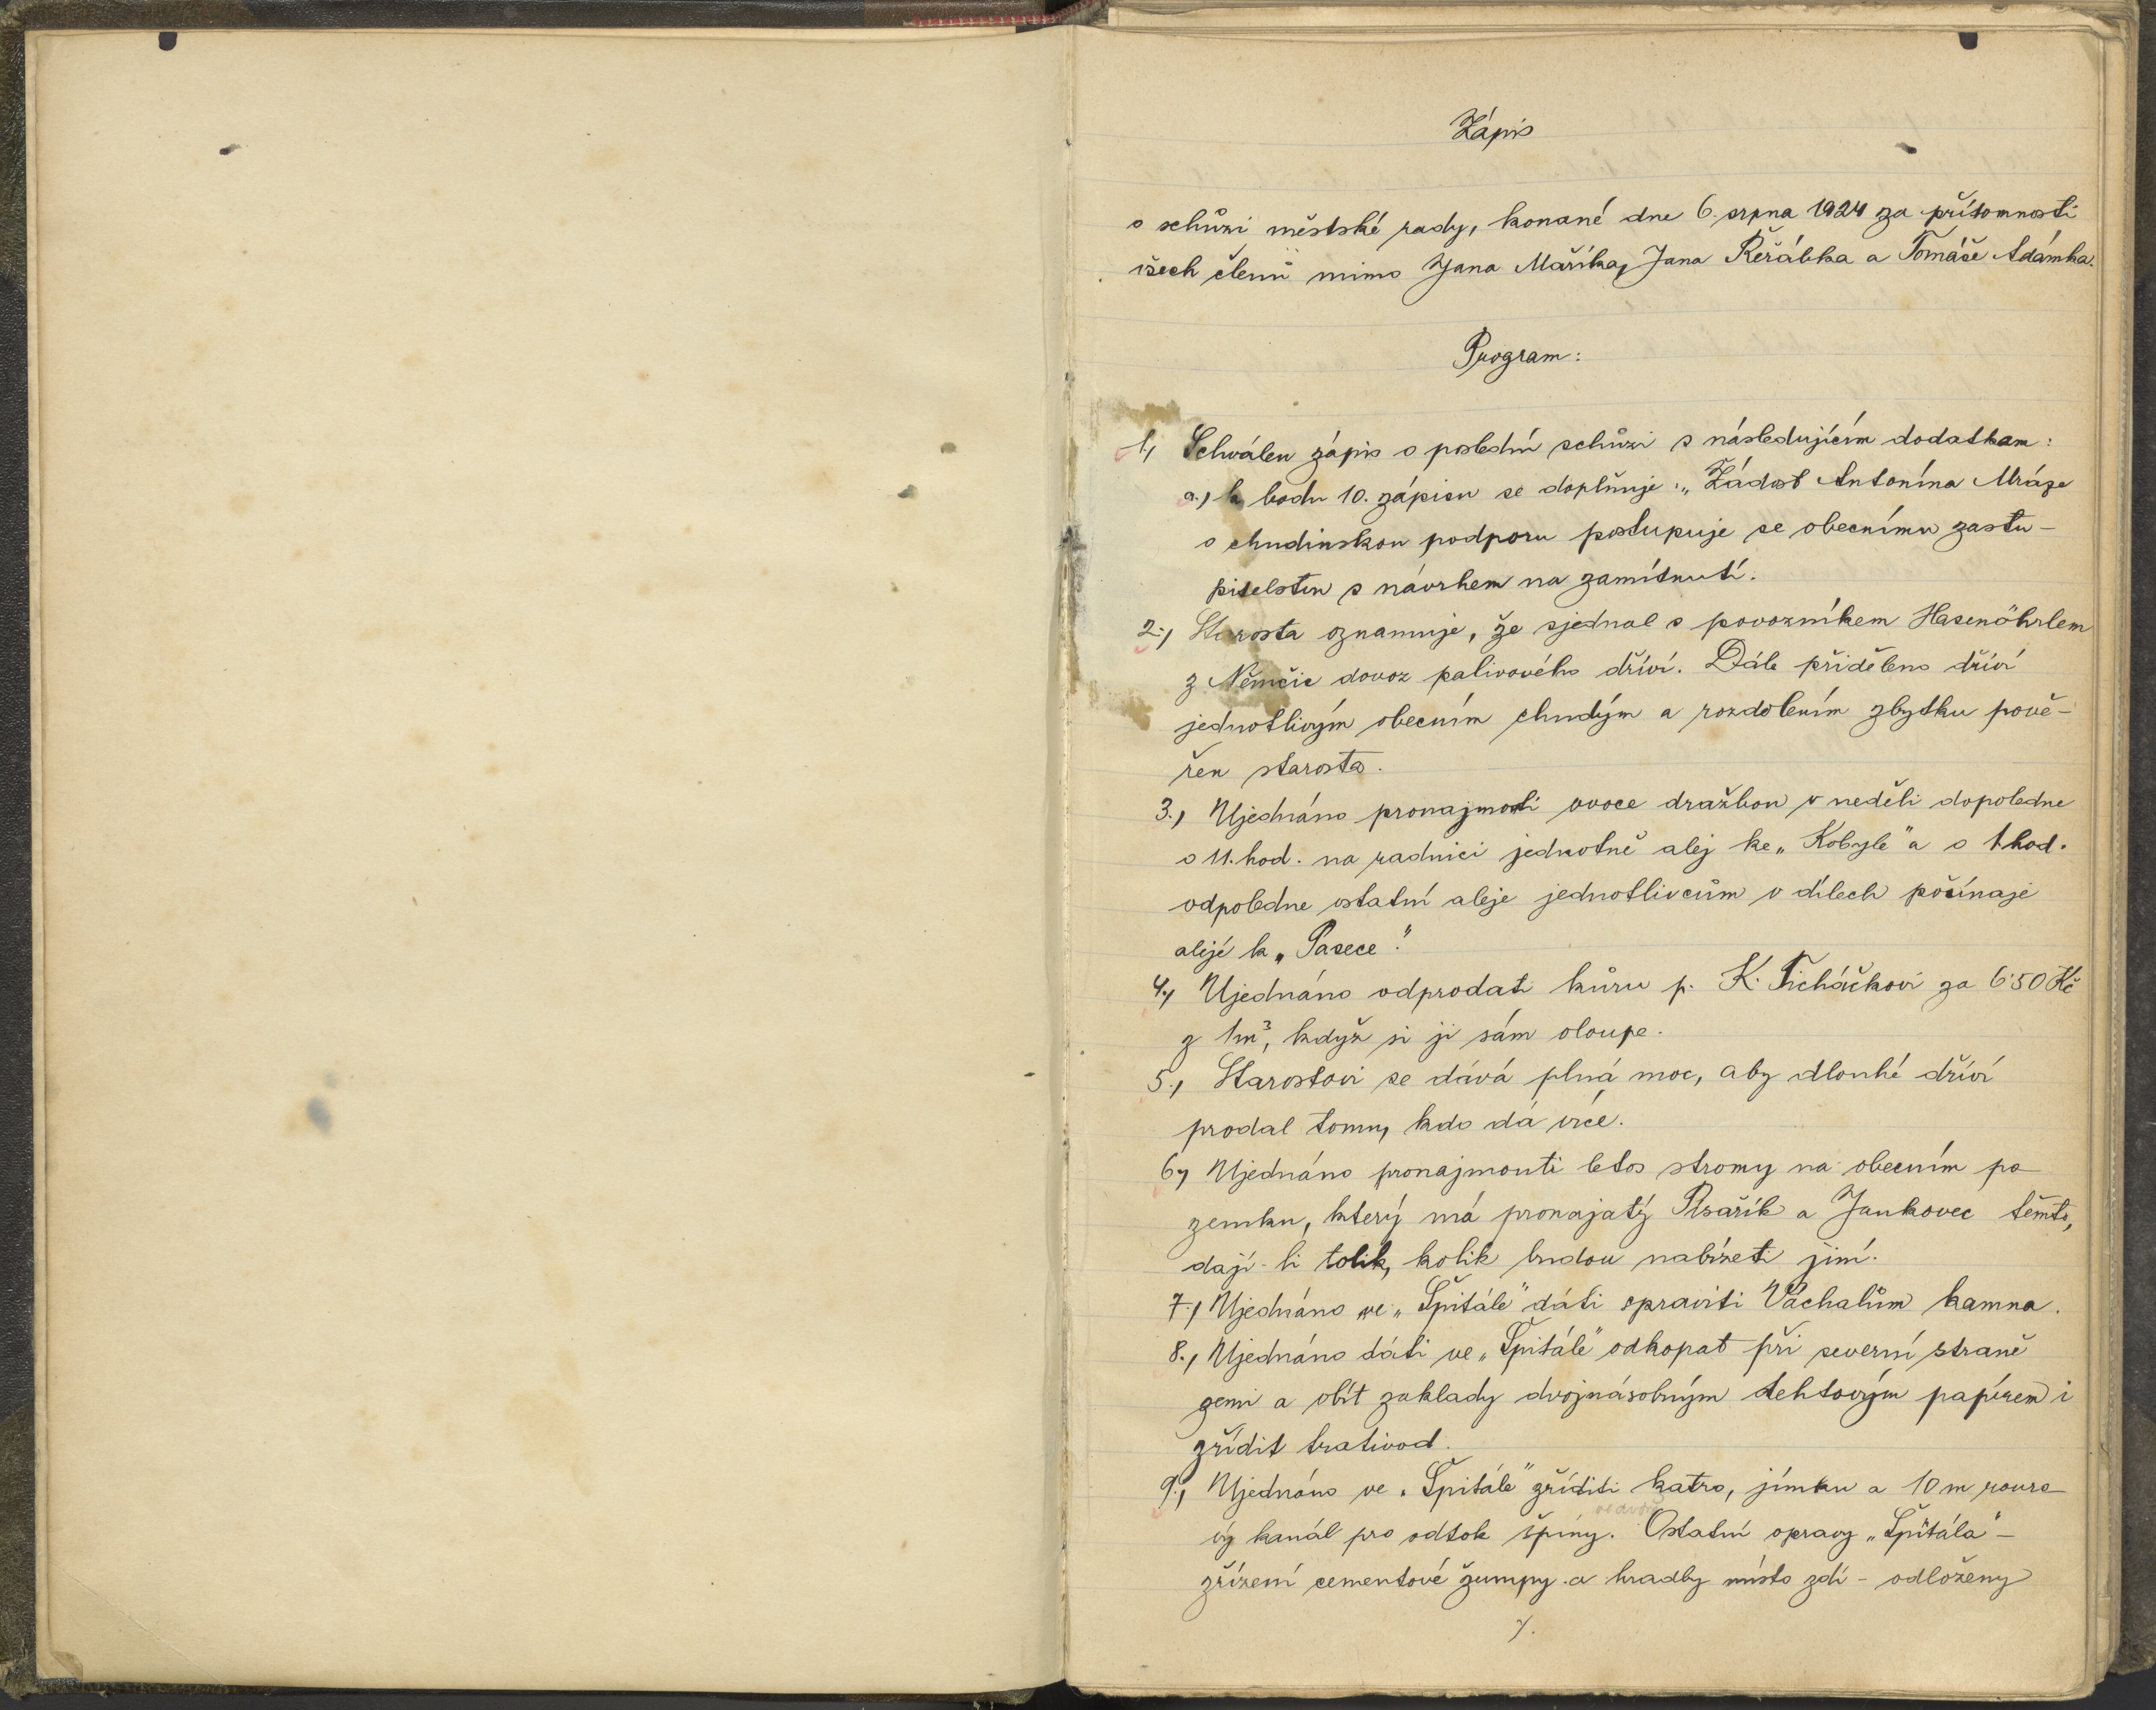 Zápis
o schůzi městské rady, konané dne 6. srpna 1924 za přítomnosti
všech členů mimo Jana Maříka, Jana Řeřábka a Tomáše Adámka.
Program:
1., Schválen zápis o poslední schůzi s následujícím dodatkam:
a., k bodu 10. zápisu se doplňuje: „Žádost Antonína Mráze
o chudinskou podporu postupuje se obecnímu zastu-
pitelstvu s návrhem na zamítnutí.
2., Starosta oznamuje, že sjednal s povozníkem Hasenöhrlem
z Němčic dovoz palivového dříví. Dále přiděleno dříví
jednotlivým obecním chudým a rozdolením zbytku pově-
řen starosta.
3., Ujednáno pronajmouti ovoce dražbou v neděli dopoledne
o 11. hod. na radnici jednotně alej ke „Kobyle" a o 1 hod.
odpoledne ostatní aleje jednotlivcům v dílech počínaje
alejí k „Pasece".
4., Ujednáno odprodati kůru p. K. Ticháčkovi za 6·50 Kč
z 1m³, když si ji sám oloupe.
5., Starostovi se dává plná moc, aby dlouhé dříví
prodal tomu, kdo dá více.
6., Ujednáno pronajmouti letos stromy na obecním po
zemku, který má pronajatý Písařík a Jankovec těmto,
dají-li tolik, kolik budou nabízeti jiní.
7., Ujednáno ve „Špitále" dáti spraviti Váchalům kamna.
8., Ujednáno dáti ve „Špitále" odkopat při severní straně
zemi a obít zaklady dvojnásobným dehtovým papírem i
zřídit trativod.
9., Ujednáno ve „Špitále" zříditi katro, jímku a 10 m rouro
ve dvoře
vý kanál pro odtok špíny. Ostatní opravy „Špitála" –
zřízení cementové žumpy a hradby místo zdi – odloženy
/.